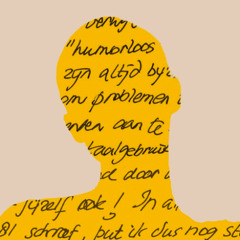 "humorloos
zijn altijd bij
om problemen
aan te
taalgebruik
door
jijzelf ook! In a
81 schreef, but ik dus nog st